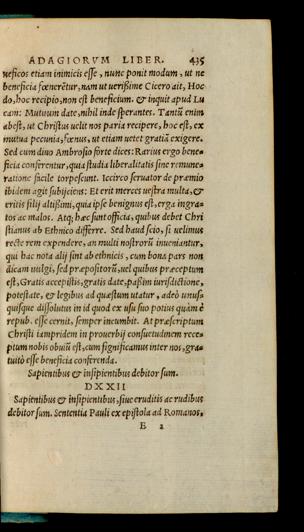 ADAGIORVM LIBER. 435
neficos etiam inimicis esse, nunc ponit modum, ut ne
beneficia fœnerẽtur, nam ut uerißime Cicero ait, Hoc
do, hoc recipio, non est beneficium. & inquit apud Lu
cam: Mutuum date, nihil inde sperantes. Tantũ enim
abest, ut Christus uelit nos paria recipere, hoc est, ex
mutua pecunia, fœnus, ut etiam uetet gratiã exigere.
Sed cum diuo Ambrosio forte dices: Rarius ergo bene-
ficia conferentur, quia studia liberalitatis sine remune-
ratione facile torpescunt. Iccirco seruator de præmio
ibidem agit subijciens: Et erit merces uestra multa, &
eritis filij altißimi, quia ipse benignus est, erga ingra-
tos ac malos. Atq; hæc sunt officia, quibus debet Chri
stianus ab Ethnico differre. Sed haud scio, si uelimus
recte rem expendere, an multi nostrorũ inueniantur,
qui hac nota alij sint ab ethnicis, cum bona pars non
dicam uulgi, sed præpositorũ, uel quibus præceptum
est, Gratis accepistis, gratis date, paßim iurisdictione,
potestate, & legibus ad quæstum utatur, adeò unus-
quisque dissolutus in id quod ex usu suo potius quàm è
repub. esse cernit, semper incumbit. At præscriptum
Christi iampridem in prouerbij consuetudinem rece-
ptum nobis obuiũ est, cum significamus inter nos, gra-
tuitò esse beneficia conferenda.
Sapientibus & insipientibus debitor sum.
DXXII
Sapientibus & insipientibus, siue eruditis ac rudibus
debitor sum. Sententia Pauli ex epistola ad Romanos,
E 2